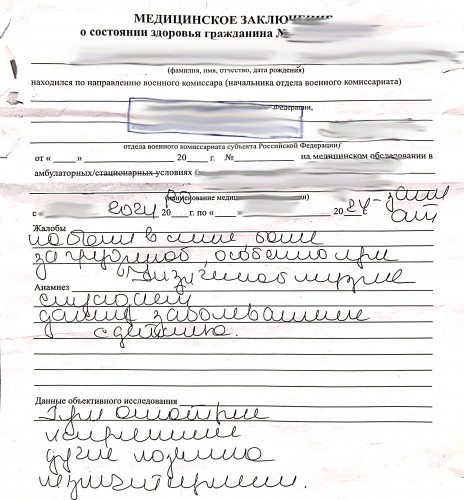 МЕДИЦИНСКОЕ ЗАКЛЮЧЕНИЕ
о состоянии здоровья гражданина №
(фамилия, имя, отчество, дата рождения)
находился по направлению военного комиссара (начальника отдела военного комиссариата)
Федерации,
отдела военного комиссариата субъекта Российской Федерации)
от « » 20 г. № на медицинском обследовании в
амбулаторных/стационарных условиях (
(наименование медиц
с « 2024 20 г. по « » 2024 г.
Жалобы
на боли в спине, боли
за грудиной, особенно при
физической нагрузке
Анамнез
страдает
данным заболеванием
с детства.
Данные объективного исследования
При осмотре
искривление
дуги позвонка